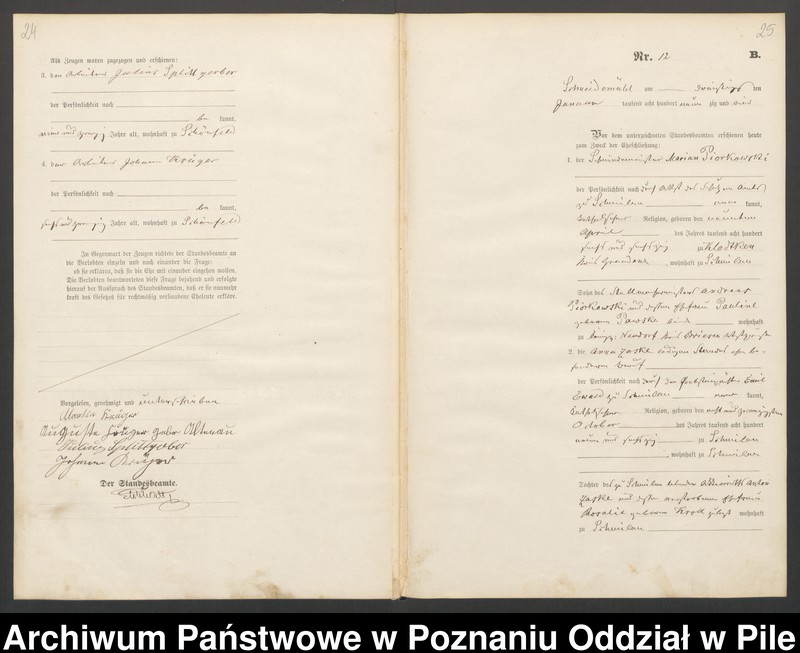 24
Als Zeugen waren zugezogen und erschienen:
3. der Arbeiter Julius Splittgerber
der Persönlichkeit nach
be kannt,
neun und zwanzig Jahre alt, wohnhaft zu Schönfeld
4. der Arbeiter Johann Krüger
der Persönlichkeit nach
be kannt,
Jahre alt, wohnhaft zu Schönfeld
In Gegenwart der Zeugen richtete der Standesbeamte an
die Verlobten einzeln und nach einander die Frage:
ob sie erklären, daß sie die Ehe mit einander eingehen wollen.
Die Verlobten beantworteten diese Frage bejahend und erfolgte
hierauf der Ausspruch des Standesbeamten, daß er sie nunmehr
kraft des Gesetzes für rechtmäßig verbundene Eheleute erkläre.
Vorgelesen, genehmigt und unterschrieben
Krüger
Auguste Krüger gebor Altenau
Julius Splittgerber
Johann Krüger
Der Standesbeamte.
25
Nr. 12
B.
Schneidemühl am dreißigsten
Januar tausend acht hundert neun zig und vier
Vor dem unterzeichneten Standesbeamten erschienen heute
zum Zweck der Eheschließung:
1. der Schneidermeister Marian Piorkowski
der Persönlichkeit nach durch Attest des Amts
zu Schmilau aner kannt,
katholischer Religion, geboren den neunten
April des Jahres tausend acht hundert
sechs und sechszig zu Klodtken
Kreis Graudenz, wohnhaft zu Schmilau
Sohn des Andreas
Piorkowski und dessen Ehefrau Pauline
geborene Pawska beide wohnhaft
zu Neudorf Kreis Briesen Westpreußen
2. die Anna Jaske ledigen Standes ohne be-
sonderen Beruf
der Persönlichkeit nach durch den Emil
Ewald zu Schmilau aner kannt,
katholischer Religion, geboren den acht und zwanzigsten
October des Jahres tausend acht hundert
neun und sechszig zu Schmilau
, wohnhaft zu Schmilau
Tochter des zu Schmilau lebenden Anton
Jaske und dessen verstorbenen Ehefrau
Rosalie geborene Kroll zuletzt wohnhaft
zu Schmilau
Archiwum Państwowe w Poznaniu Oddział w Pile